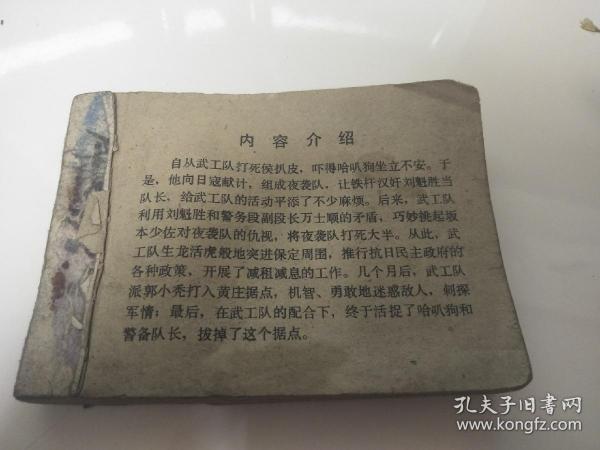 内容介绍
自从武工队打死侯扒皮，吓得哈叭狗坐立不安。于
是，他向日寇献计，组成夜袭队，让铁杆汉奸刘魁胜当
队长，给武工队的活动平添了不少麻烦。后来，武工队
利用刘魁胜和警务段副段长万士顺的矛盾，巧妙挑起坂
本少佐对夜袭队的仇视，将夜袭队打死大半。从此，武
工队生龙活虎般地突进保定周围，推行抗日民主政府的
各种政策，开展了减租减息的工作。几个月后，武工队
派郭小秃打入黄庄据点，机智、勇敢地迷惑敌人，刺探
军情；最后，在武工队的配合下，终于活捉了哈叭狗和
警备队长，拔掉了这个据点。
孔夫子旧书网
www.kongfz.com